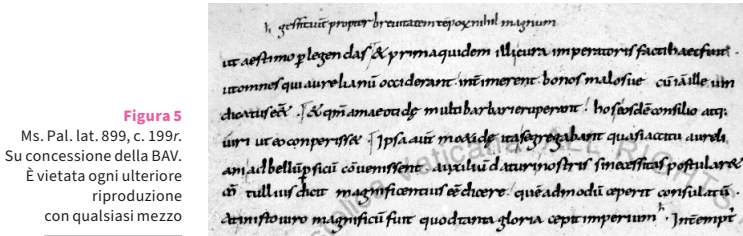 Figura 5
Ms. Pal. lat. 899, c. 199r.
Su concessione della BAV.
È vietata ogni ulteriore
riproduzione
con qualsiasi mezzo
gessit propter brevitatem tēpoꝝ nihil magnum
ut aestimo ꝑlegendas & prima quidem illi cura imperatoris facti haec fuit
ut omnes qui aurelianū occiderant intimerent bonos malosue cū iā ille uin
dicatus eēt & qm̄ a maeotidę multi barbari eruperant hos eosdē consilio atq;
uiri ut eo conperisse Ipsa aut maeotidę ita se gregabant quasi accitu aureli
ani ad bellū ꝑsicū cōuenissent auxiliū daturi nostris si necessitas postular&
m̄ tullius dicit magnificentius eē dicere quēadmodū ceperit consulatū
at in isto uiro magnificū fuit quod tanta gloria cepit imperium